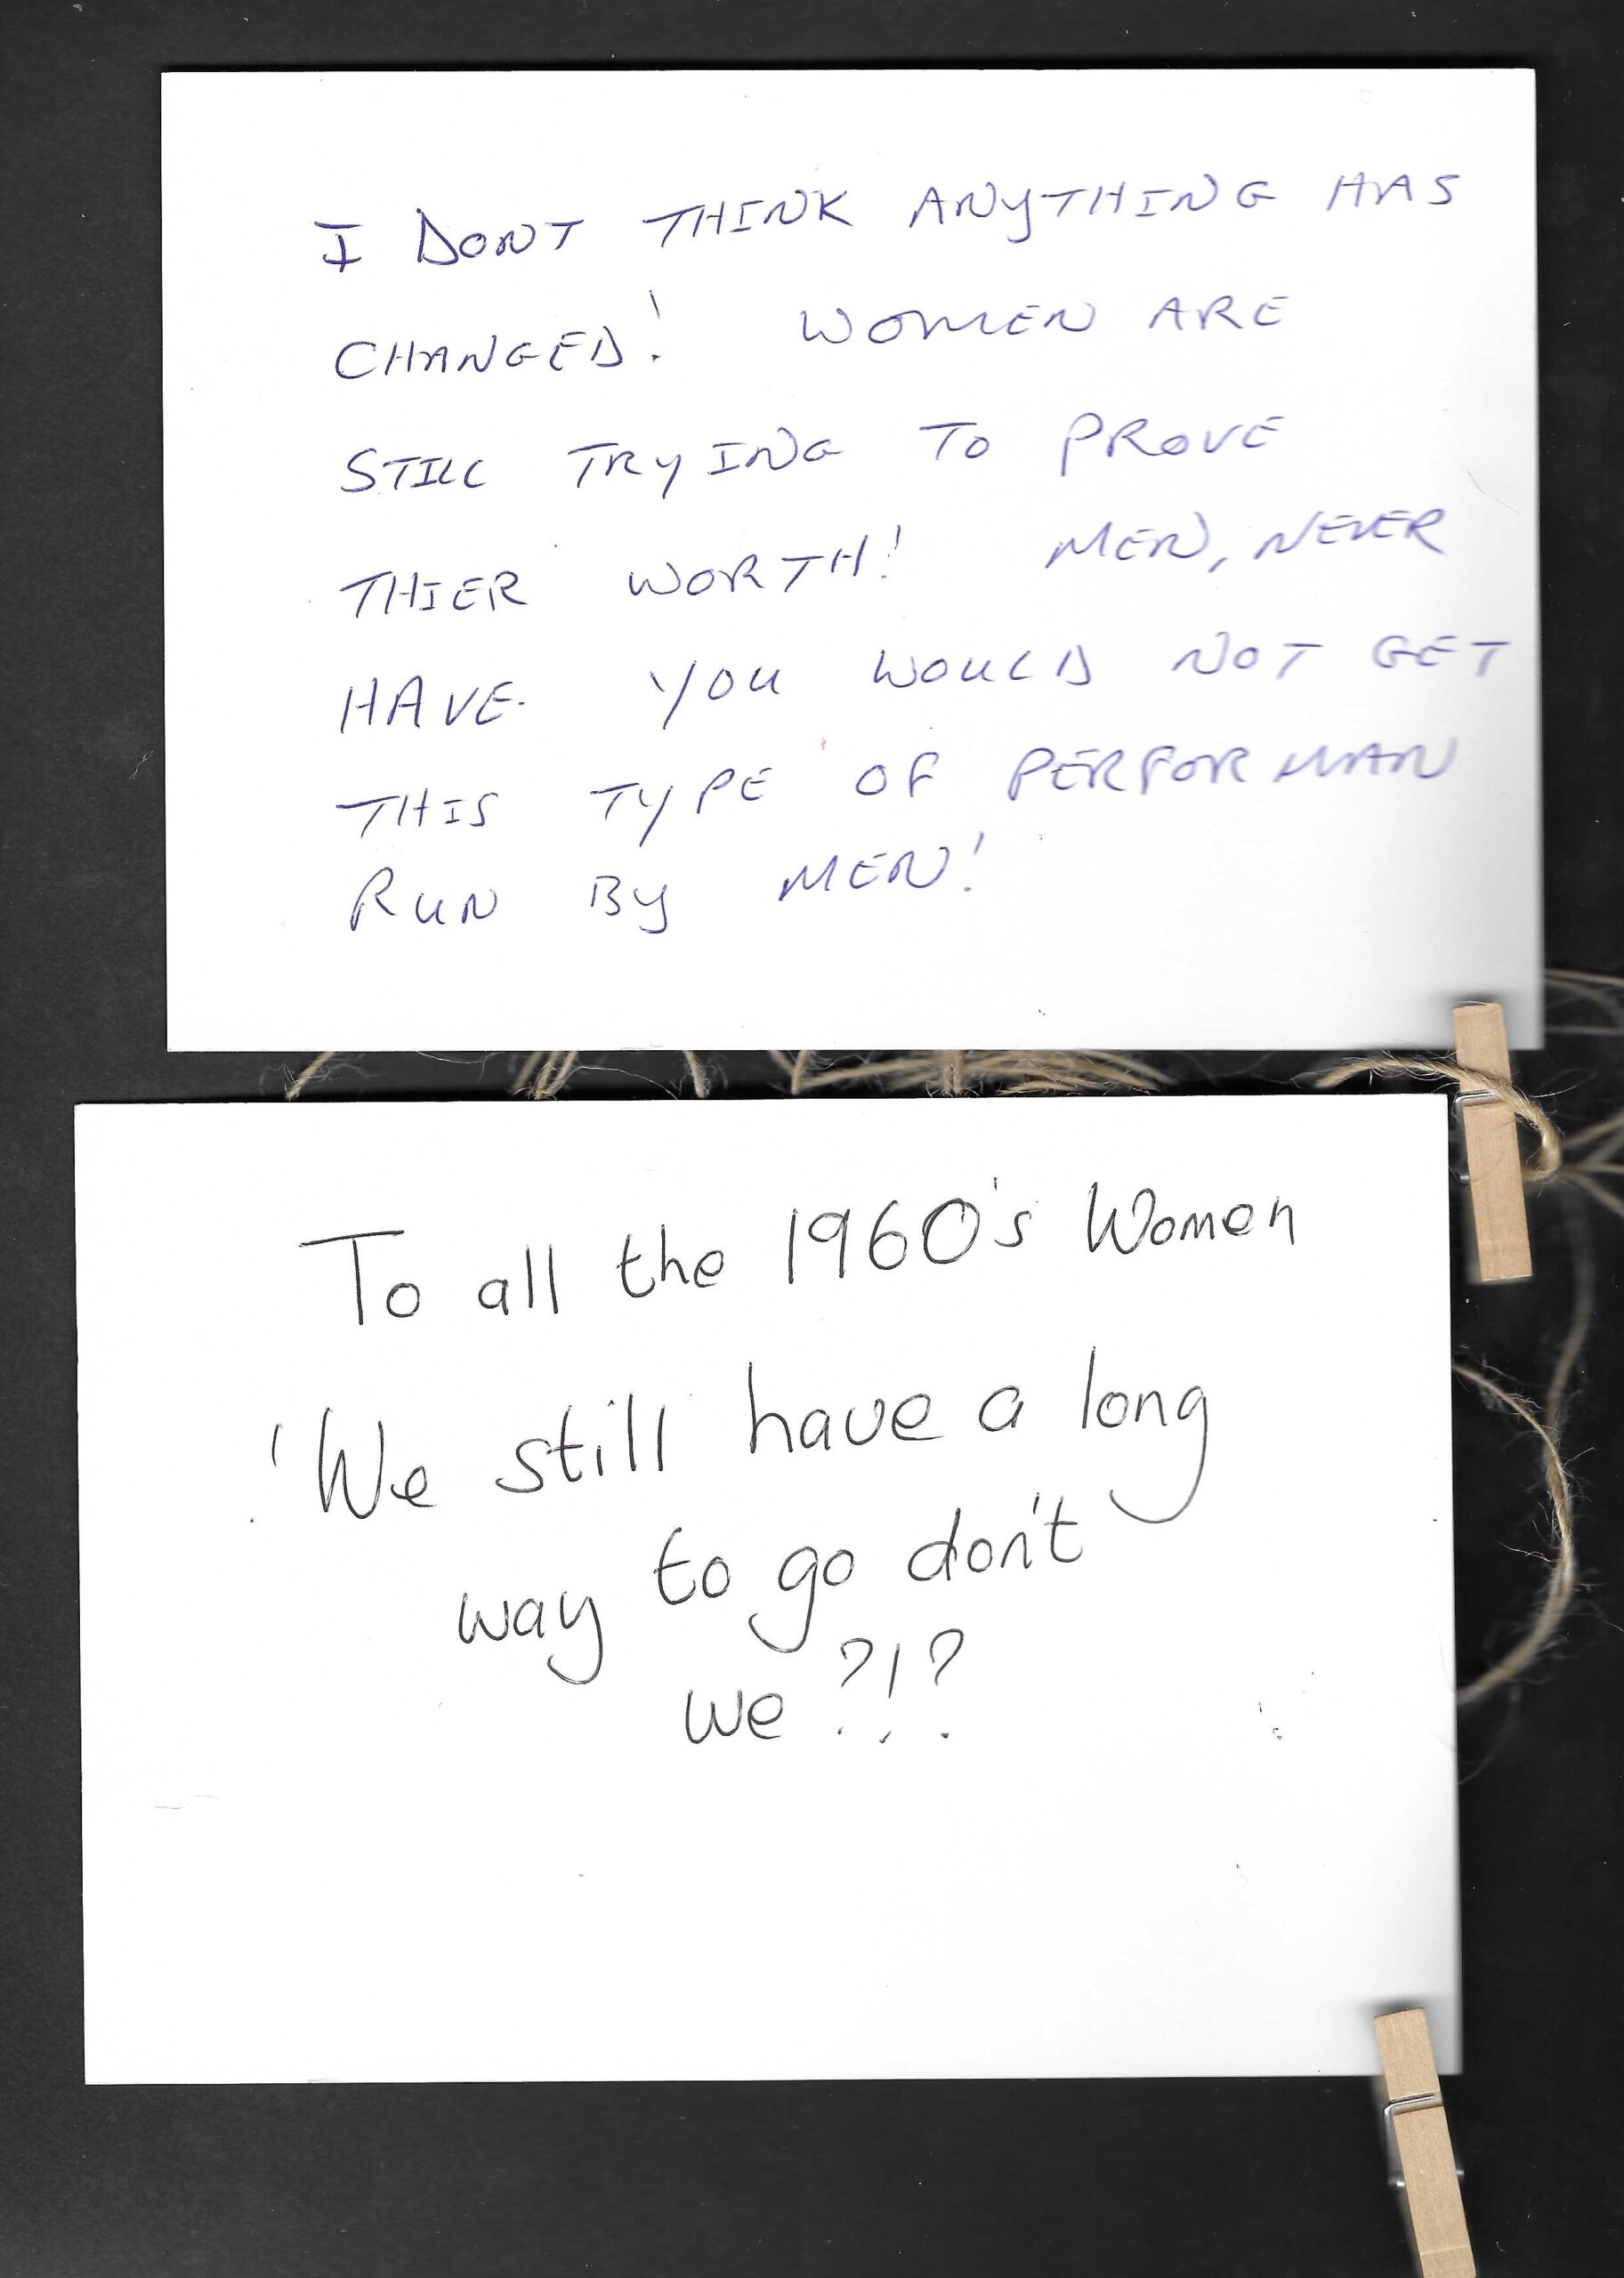 I DONT THINK ANYTHING HAS
CHANGED! WOMEN ARE
STILL TRYING TO PROVE
THIER WORTH! MEN, NEVER
HAVE. YOU WOULD NOT GET
THIS TYPE OF PERFORMAN
RUN BY MEN!
To all the 1960's Women
'We still have a long
way to go don't
we ?!?